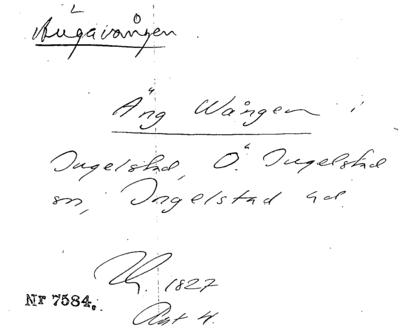 Ängavången
Äng Wången i
Ingelstad, Ö. Ingelstad
sn, Ingelstad hd.
1827
Nr 7584.
Akt 4.